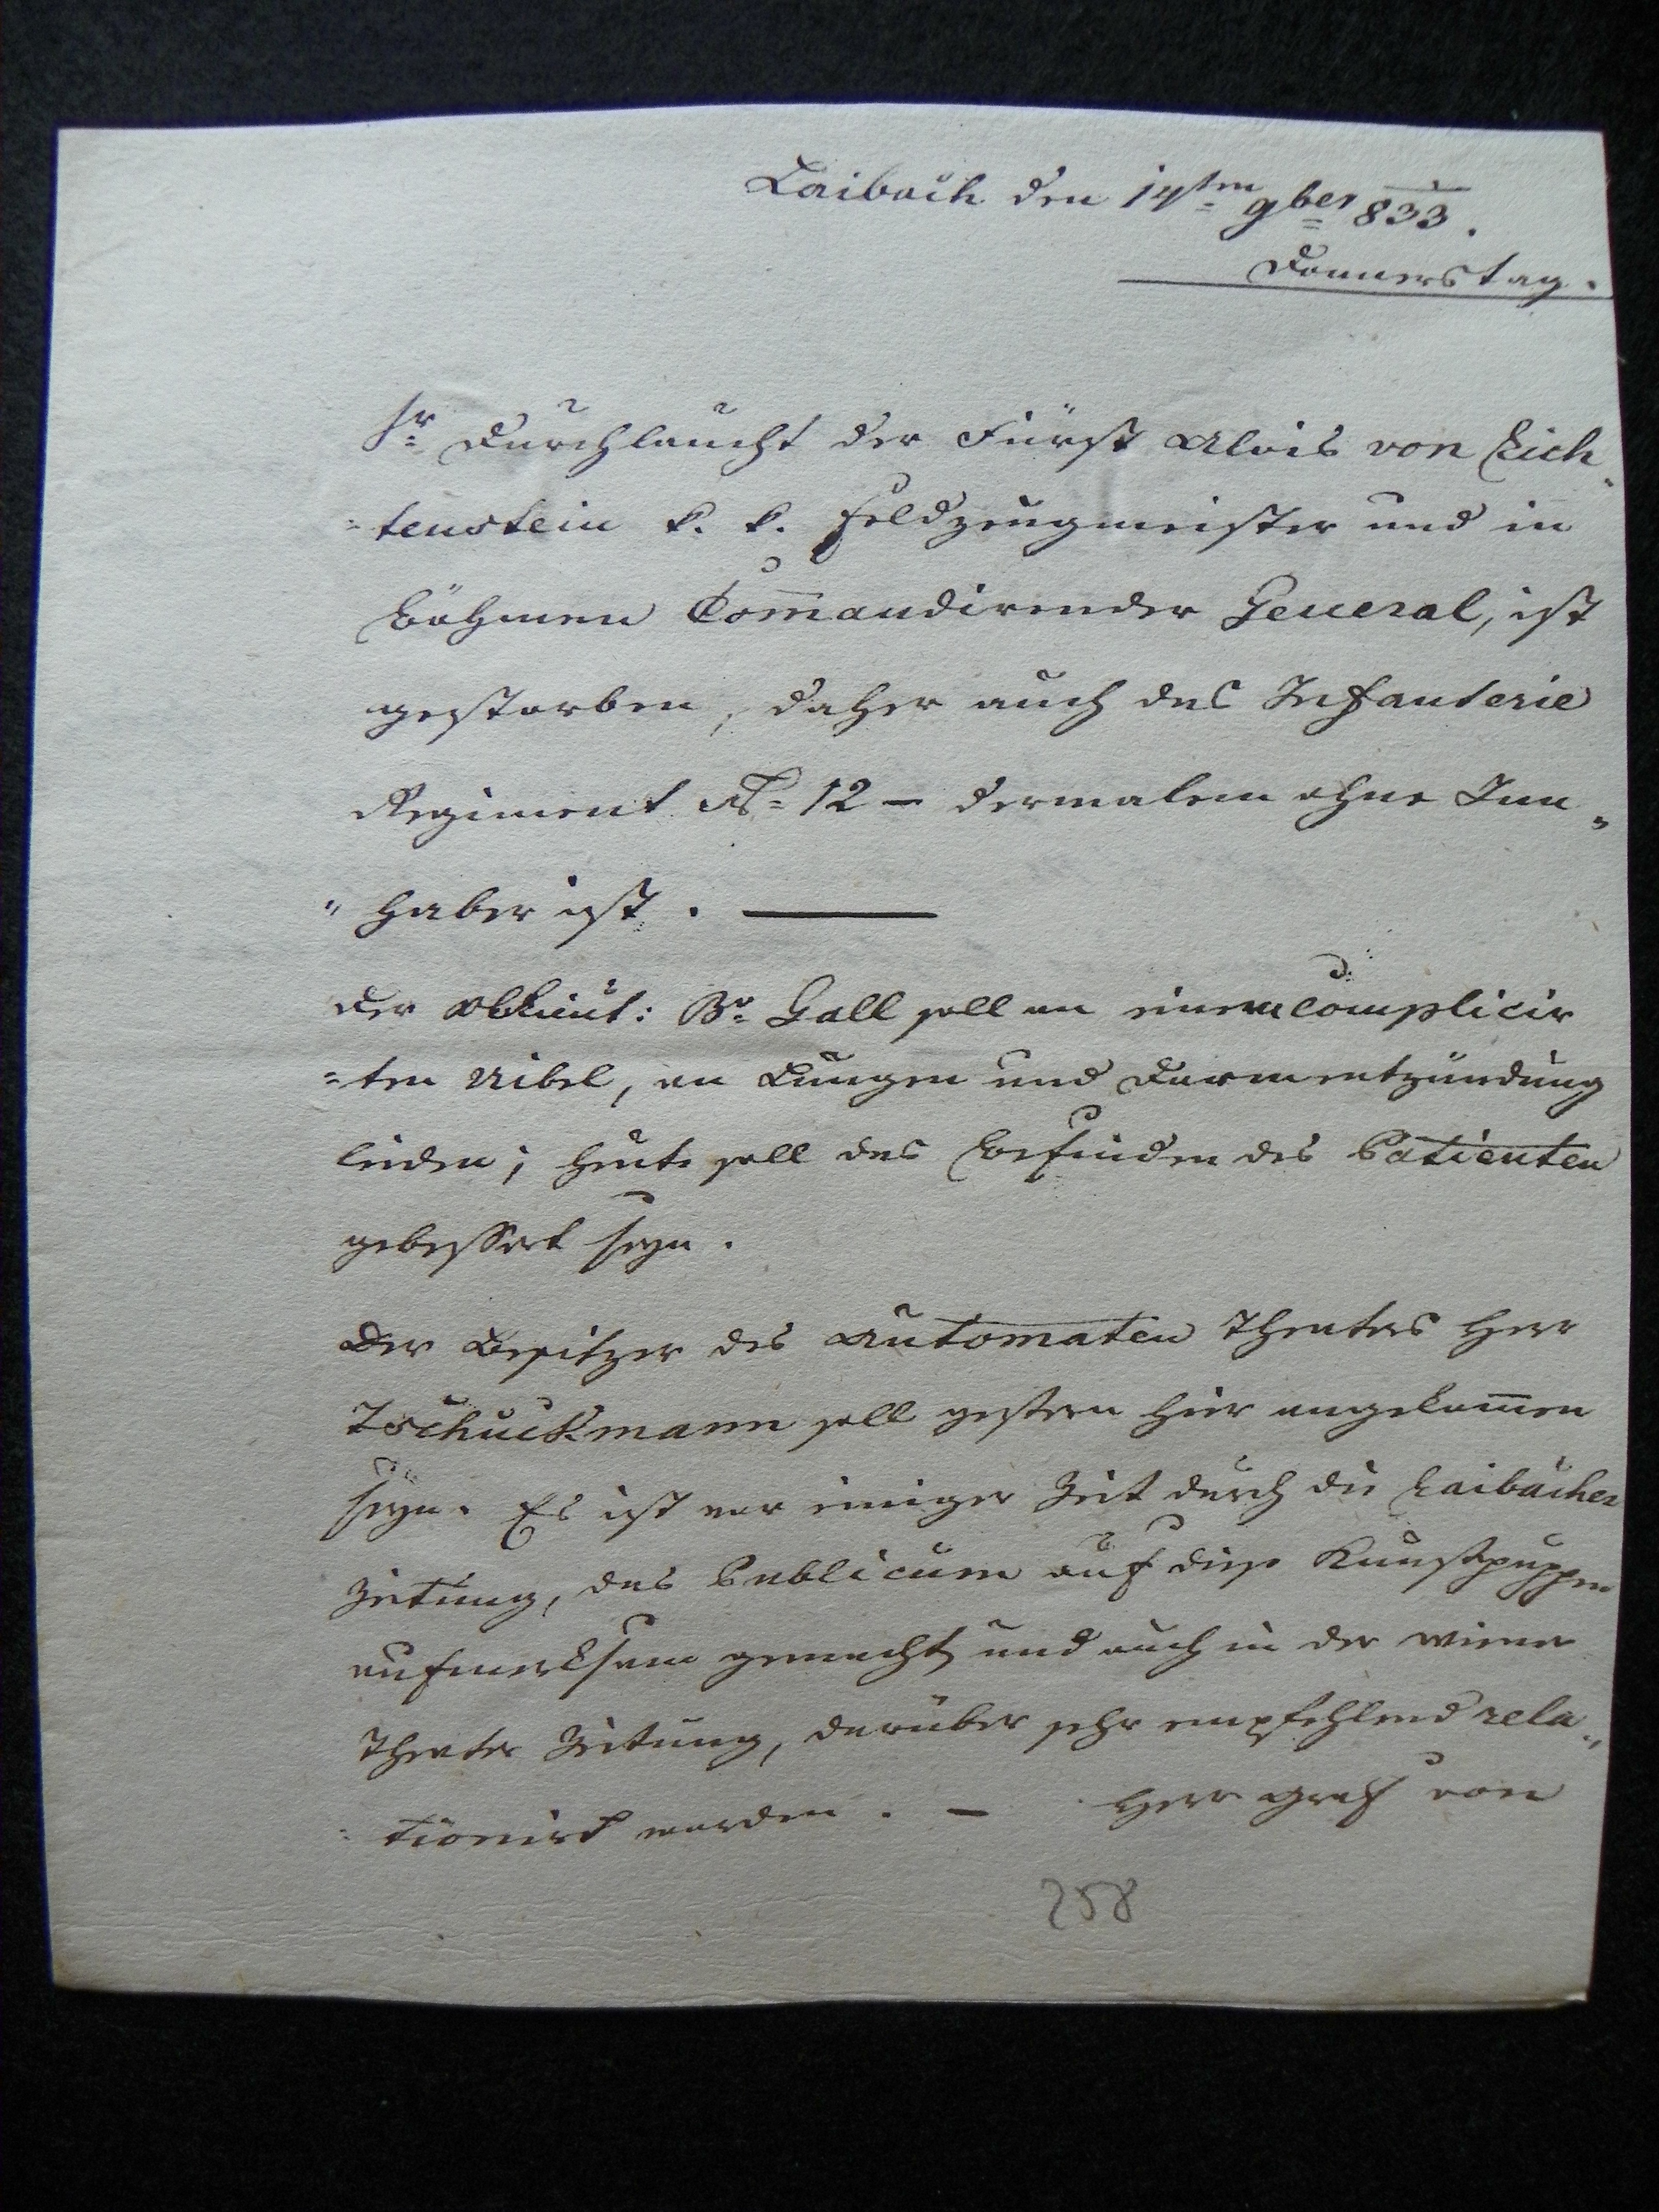 Laibach den 14ten 9ber 833.
Donnerstag.
Sr Durchlaucht der Fürst Alois von Lich-
-tenstein k. k. Feldzeugmeister und in
Böhmen Com̅andirender General, ist
gestorben, daher auch das Infanterie
Regiment No 12 – dermalen ohne Inn-
"haber ist. —
Der Obllieut: Br Gall soll an einem complicir
=ten Uibel, an Lungen und Darmentzündung
leiden; heute soll das Befinden des Patienten
gebessert seyn.
Der Besitzer des Automaten Theaters Herr
Tschuckmann soll gestern hier angekom̅en
seyn. Es ist vor einiger Zeit durch die Laibacher
Zeitung, das Publicum auf diese Kunstpuppen
aufmerksam gemacht, und auch in der Wiener
Theater Zeitung, darüber sehr empfehlend rela-
-tionirt worden. – Herr Graf von
258